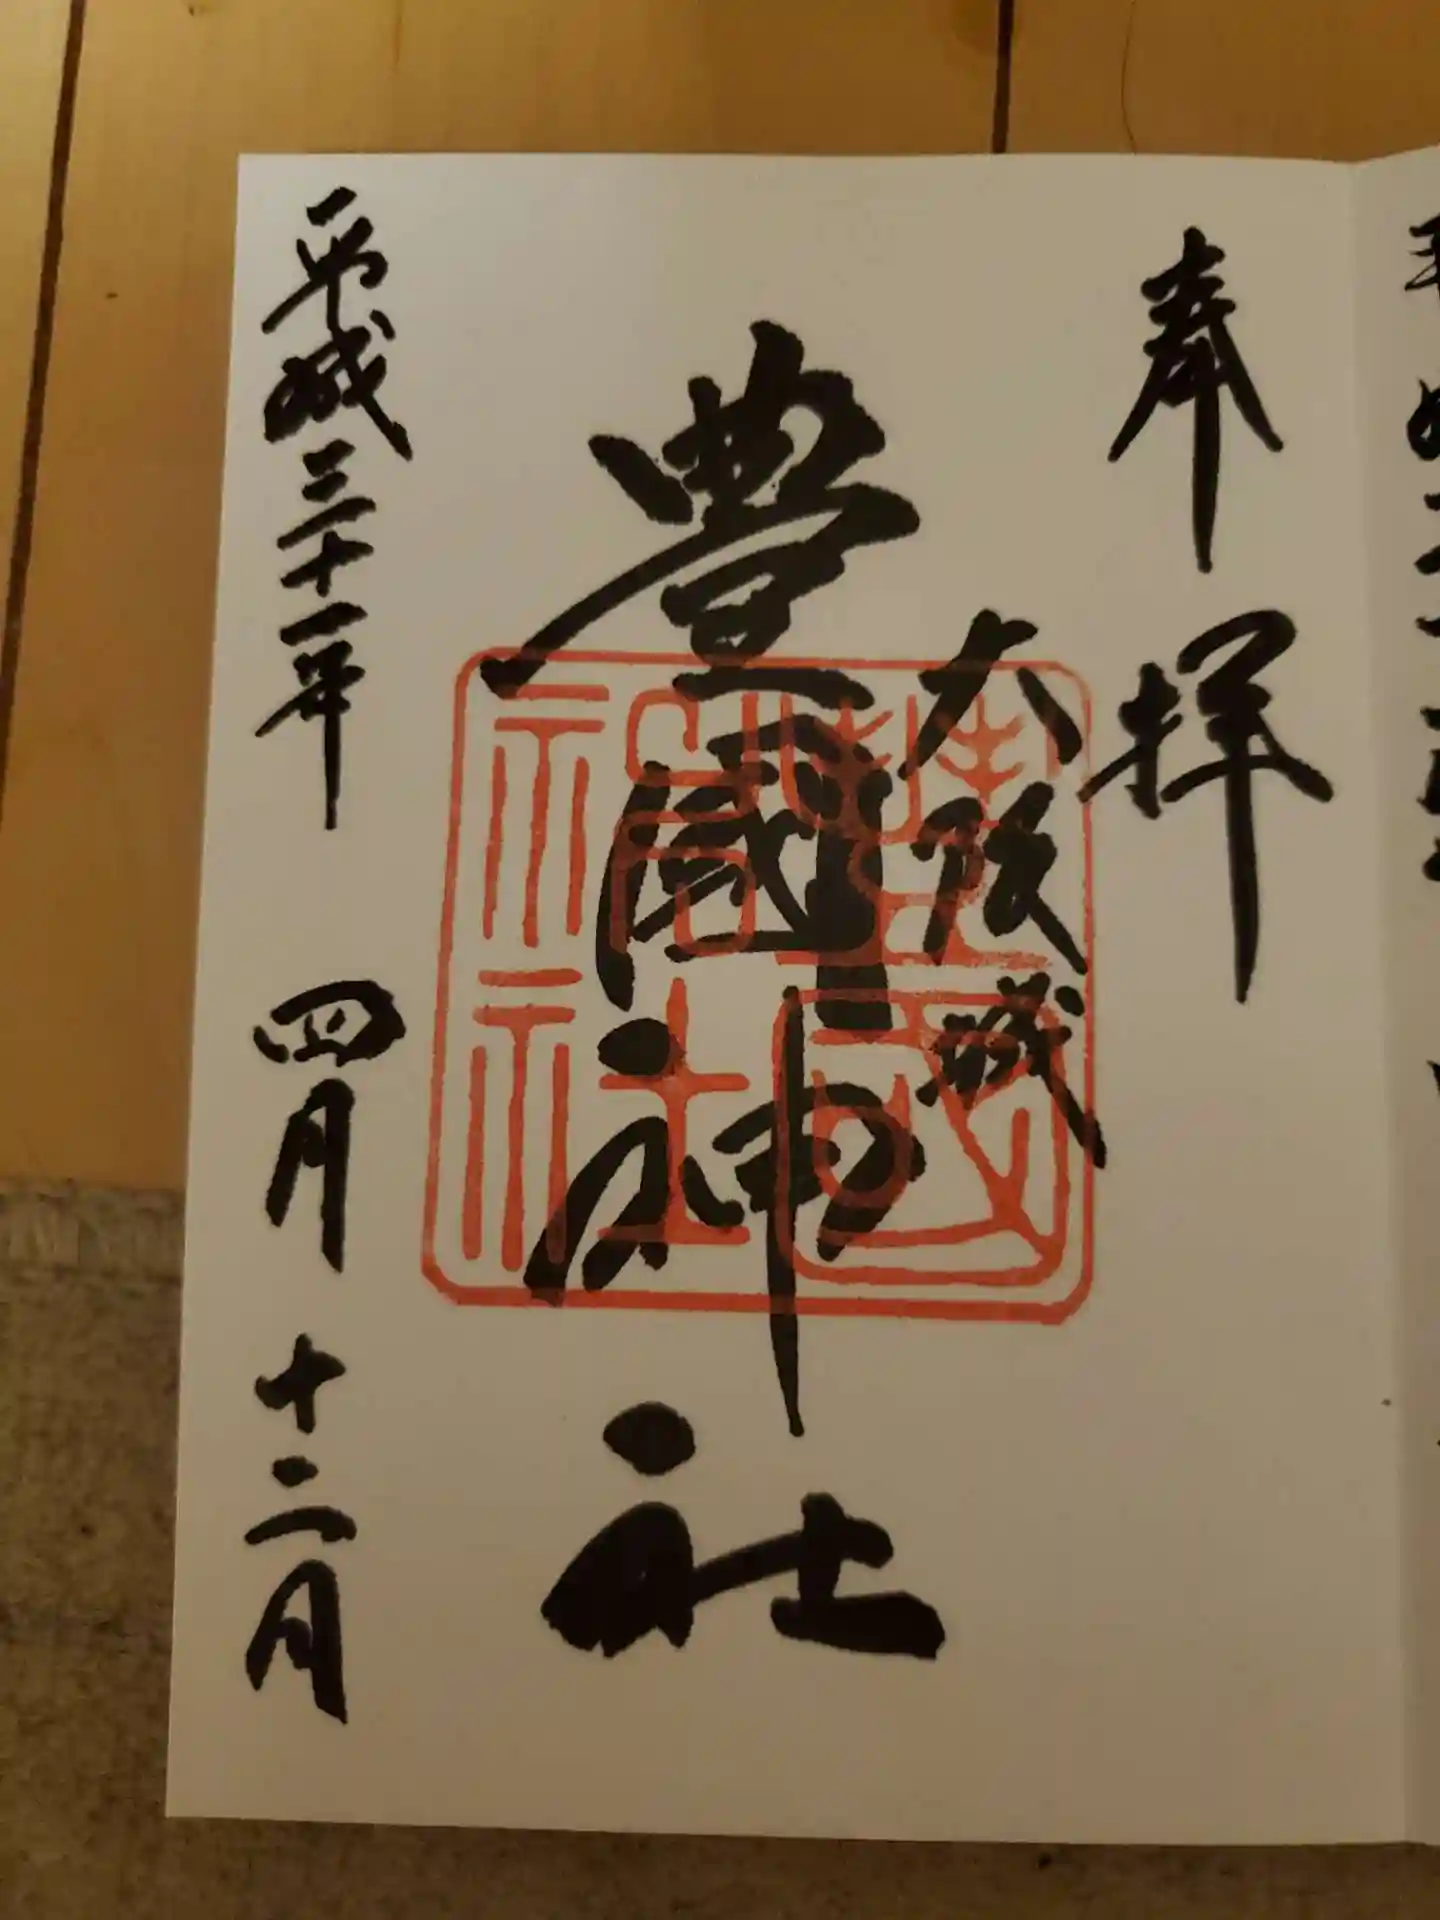 奉拝
大阪城
豊國神社
豊國神社
平成三十一年 四月 十二日